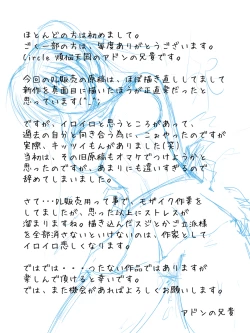 ほとんどの方は初めまして。
ごく一部の方は、毎度ありがとうございます。
Circle 煩悩天国のアドンの兄貴です。
今回のDL販売の原稿は、ほぼ描き直ししてまして
新作を真面目に描いたほうが正直楽だったと
思っています(^_^;
ですが、イロイロと思うところがあって、
過去の自分と向き合う為に、こぉやったのですが
実際、キッツイもんがありました(笑)
当初は、その旧原稿もオマケでつけようかと
思ったのですが、あまりにも違いすぎるので
辞めてしまいました。
さて・・・DL販売用って事で、モザイク作業を
してましたが、思った以上にストレスが
溜まりますね。描き込んだスジとかご立派様
を全部消さないといけないのは、作家として
イロイロ悲しくなります。
ではでは・・・・つたない作品ではありますが
楽しんで頂けると幸いです。
では、また機会があればよろしくお願いします。
アドンの兄貴